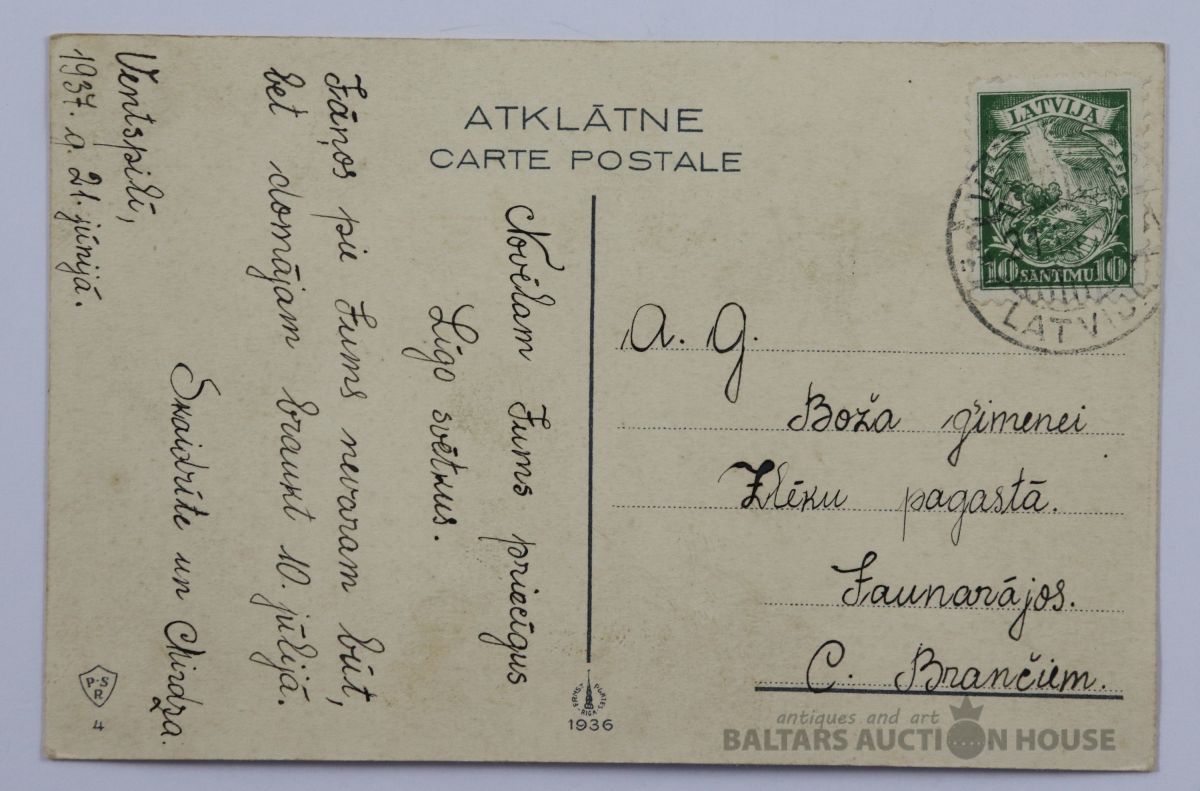 ATKLĀTNE
CARTE POSTALE
LATVIJA
10 SANTIMU 10
LATVIJA
Novēlam Jums priecīgus
Līgo svētkus.
Jāņos pie Jums nevaram būt,
bet domājam braukt 10. jūlijā.
Skaidrīte un Mirdza.
Ventspilī,
1937. g. 21. jūnijā.
A. G.
Boža ģimenei
Zlēku pagastā.
Jaunarājos.
C. Brančiem.
P.S.R.
4
RIGA
1936
antiques and art
BALTARS AUCTION HOUSE